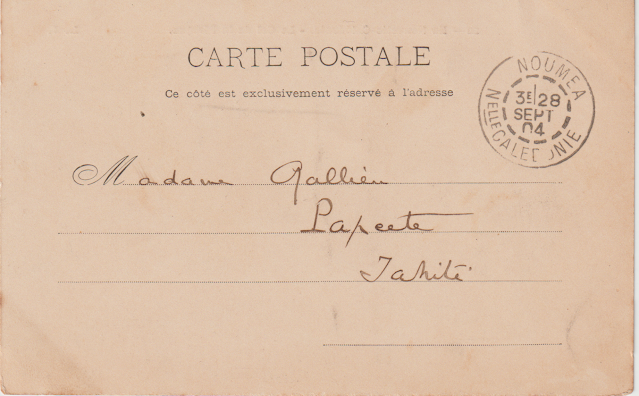 CARTE POSTALE
Ce côté est exclusivement réservé à l'adresse
NOUMEA
3E 28
SEPT
04
NELLE CALEDONIE
Madame Gallien
Papeete
Tahiti